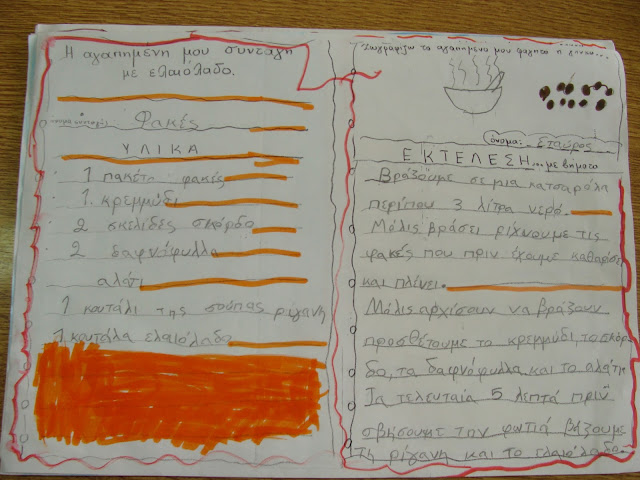 Η αγαπημένη μου συνταγή
με ελαιόλαδο.
Φακές
ΥΛΙΚΑ
1 πακέτο φακές
1 κρεμμύδι
2 σκελίδες σκόρδο
2 δαφνόφυλλα
αλάτι
1 κουτάλι της σούπας ρίγανη
1 κουτάλα ελαιόλαδο
Ζωγραφίζω το αγαπημένο μου φαγητό ή γλυκό....
όνομα: Σταύρος
ΕΚΤΕΛΕΣΗ...με βήματα
Βράζουμε σε μια κατσαρόλα
περίπου 3 λίτρα νερό.
Μόλις βράσει ρίχνουμε τις
φακές που πριν έχουμε καθαρίσει
και πλίνει.
Μόλις αρχίσουν να βράζουν
προσθέτουμε το κρεμμύδι, το σκόρ
δο, τα δαφνόφυλλα και το αλάτι
Τα τελευταία 5 λεπτά πριν
σβήσουμε την φωτιά βάζουμε
τη ρίγανη και το ελαιόλαδο.